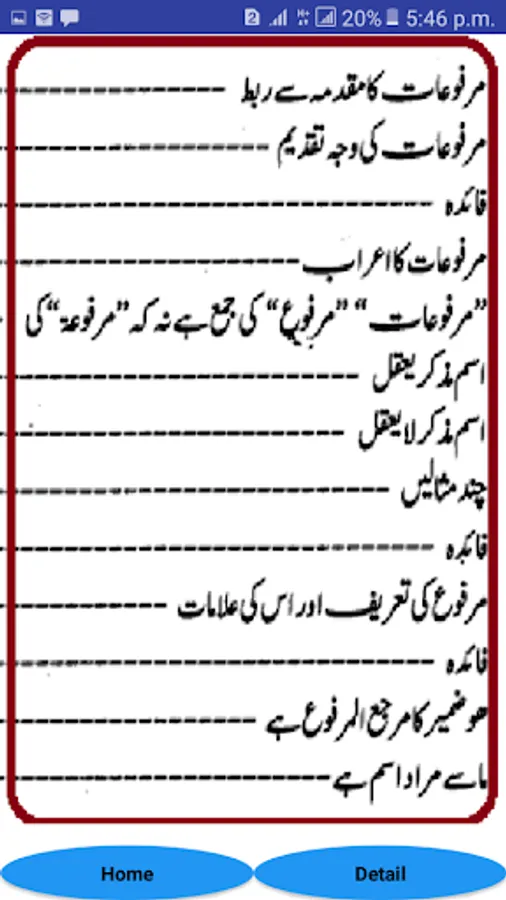 20% 5:46 p.m.
مرفوعات کا مقدمہ سے ربط
مرفوعات کی وجہ تقدیم
فائدہ
مرفوعات کا اعراب
”مرفوعات“ ”مرفوع“ کی جمع ہے نہ کہ ”مرفوعۃ“ کی
اسم مذکر یعقل
اسم مذکر لا یعقل
چند مثالیں
فائدہ
مرفوع کی تعریف اور اس کی علامات
فائدہ
ھو ضمیر کا مرجع المرفوع ہے
ما سے مراد اسم ہے
Home Detail